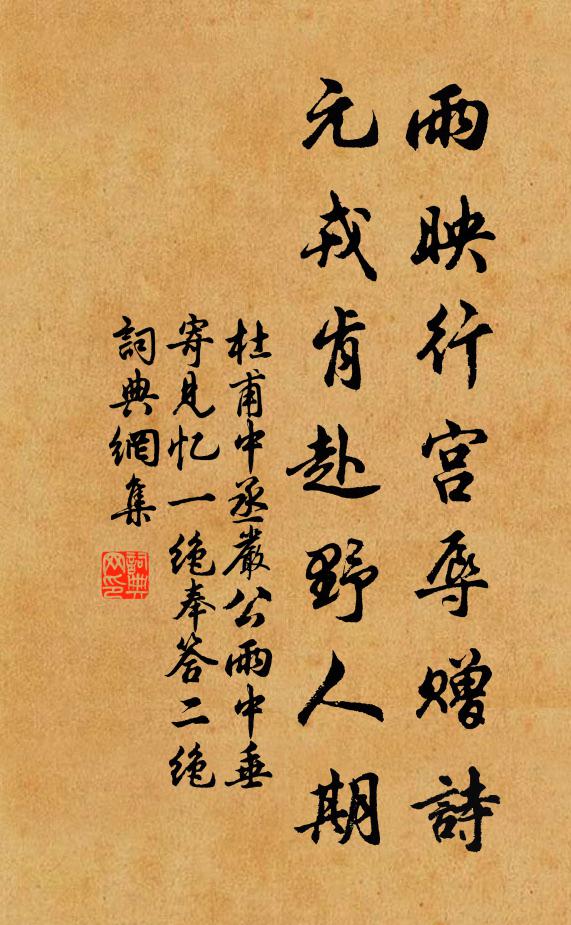 雨映行宫辱赠詩
元戎肯赴野人期
杜甫中丞嚴公雨中垂
寄見忆一绝奉答二绝
詞典網集
詞典
网印